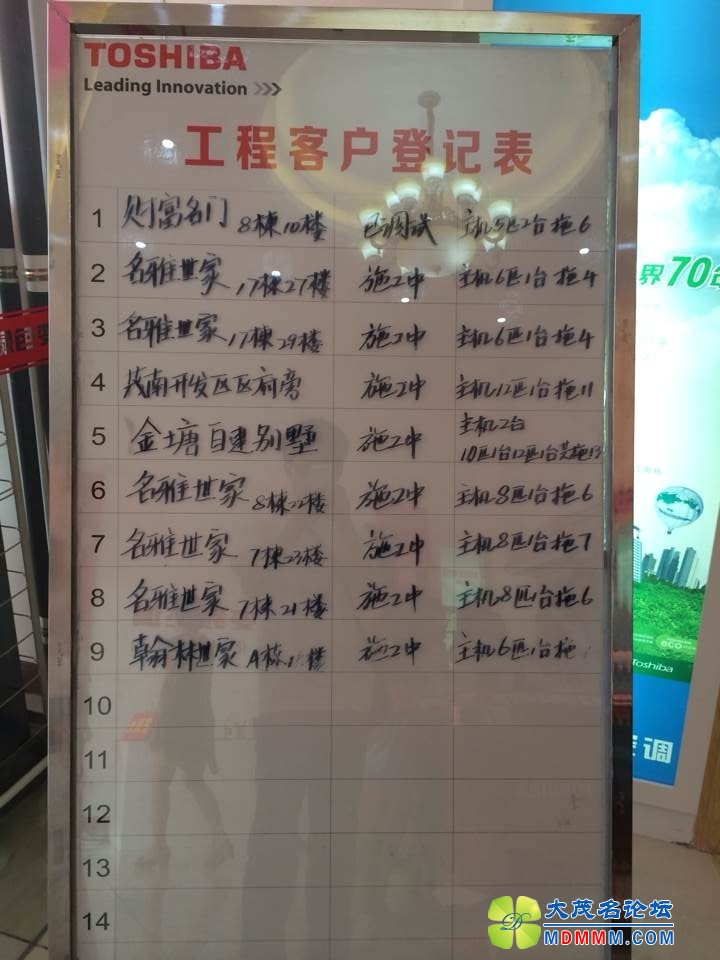 TOSHIBA
Leading Innovation >>>
工程客户登记表
1 财富名门 8栋10楼 已调试 主机5匹2台拖6
2 名雅世家 17栋27楼 施工中 主机6匹1台拖4
3 名雅世家 17栋29楼 施工中 主机6匹1台拖4
4 茂南开发区区府旁 施工中 主机12匹1台拖11
5 金塘自建别墅 施工中 主机2台
10匹1台12匹1台共拖13
6 名雅世家 8栋22楼 施工中 主机8匹1台拖6
7 名雅世家 7栋23楼 施工中 主机8匹1台拖7
8 名雅世家 7栋21楼 施工中 主机8匹1台拖6
9 翰林世家 A栋 楼 施工中 主机6匹1台拖
10
11
12
13
14
界70年
eco
Toshiba
调
大茂名论坛
MDMMM.COM